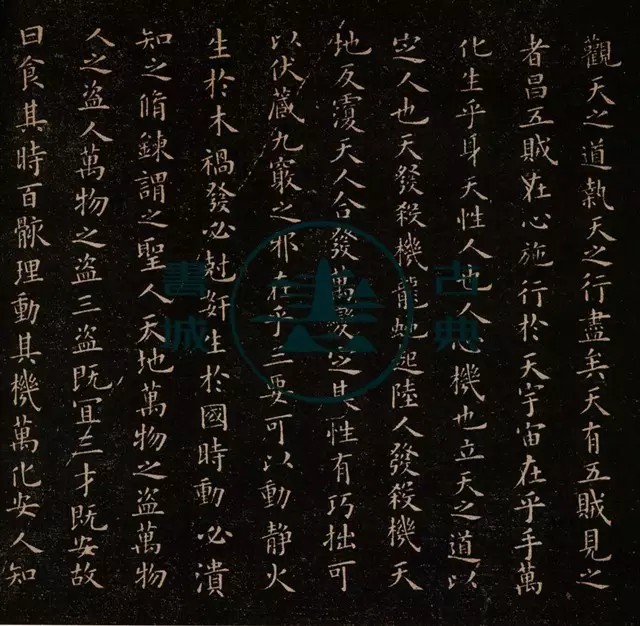 觀天之道執天之行盡矣天有五賊見之
者昌五賊在心施行於天宇宙在乎手萬
化生乎身天性人也人心機也立天之道以
㝎人也天發殺機龍蛇起陸人發殺機天
地反覆天人合發萬變㝎基性有巧拙可
以伏藏九竅之邪在乎三要可以動静火
生於木禍發必尅奸生於國時動必潰
知之脩鍊謂之聖人天地萬物之盗萬物
人之盗人萬物之盗三盗既冝三才既安故
曰食其時百骸理動其機萬化安人知
古典
書城